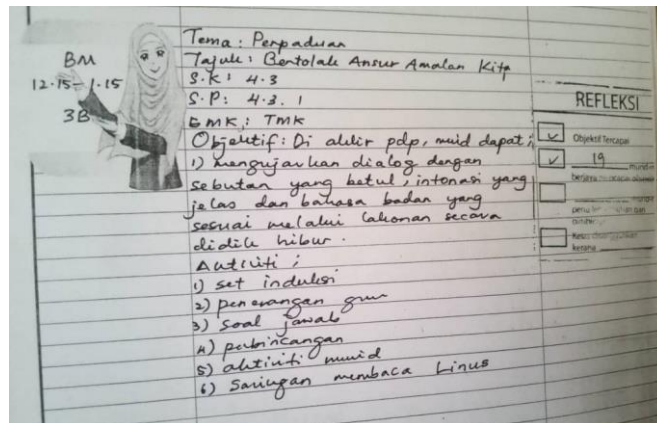 BM
12.15 - 1.15
3B
Tema : Perpaduan
Tajuk : Bertolak Ansur Amalan Kita
S.K : 4.3
S.P : 4.3.1
EMK : TMK
Objektif : Di akhir pdp, murid dapat ;
1) mengujarkan dialog dengan
sebutan yang betul, intonasi yang
jelas dan bahasa badan yang
sesuai melalui lakonan secara
didik hibur.
Aktiviti ;
1) set induksi
2) penerangan guru
3) soal jawab
4) perbincangan
5) aktiviti murid
6) saringan membaca Linus
REFLEKSI
Objektif Tercapai
19 murid
berjaya
murid
perlu
kerana